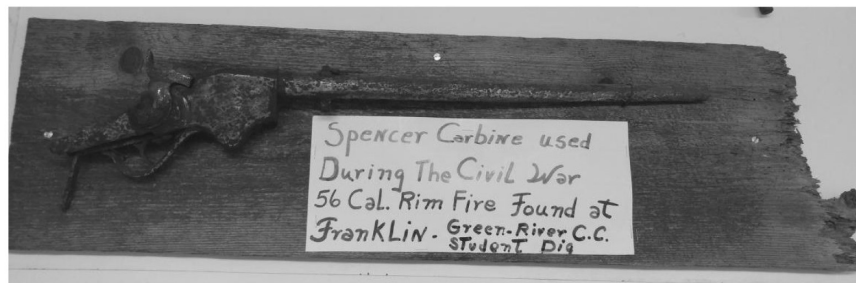 Spencer Carbine used
During The Civil War
56 Cal. Rim Fire Found at
FranKLiN - Green-River C.C.
STudenT Dig